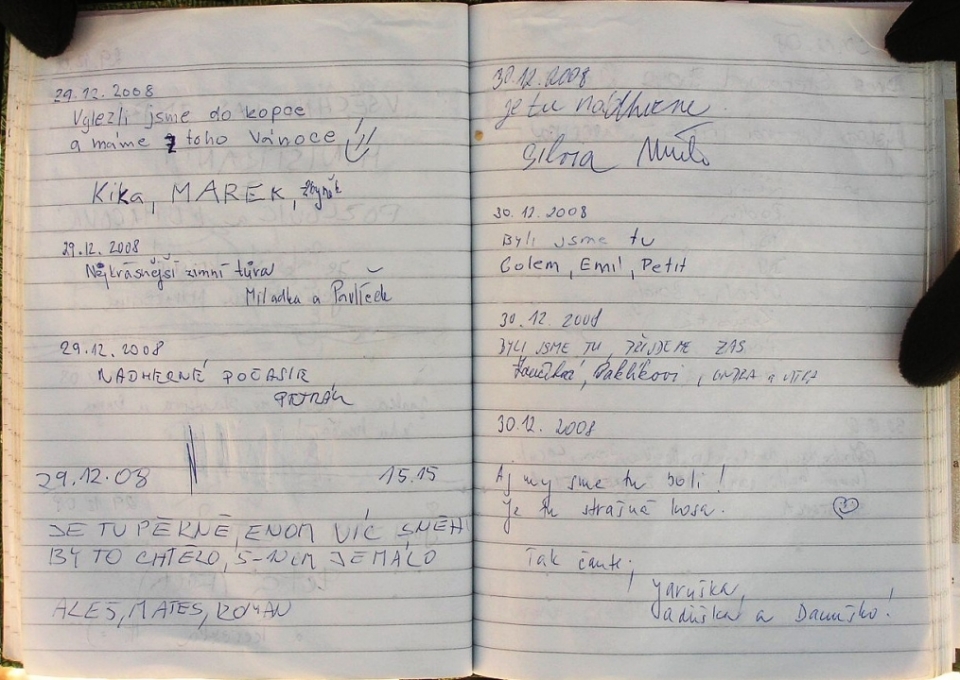 29.12.2008
Vylezli jsme do kopce
a máme z toho Vánoce!
Kika, MAREK, Zbyněk
29.12.2008
Nejkrásnější zimní túra
Miladka a Pavlíček
29.12.2008
NÁDHERNÉ POČASIE
PETRÁK
29.12.08 15.15
JE TU PĚKNĚ, ENOM VÍC SNĚH
BY TO CHTĚLO, 5-10CM JE MÁLO
ALEŠ, MATES, ROMAN
30.12.2008
je tu nádherne
Silvia
30.12.2008
Byli jsme tu
Golem, Emil, Petit
30.12.2008
BYLI JSME TU, PŘIJDEME ZAS
ONDRA a VÍŤA
30.12.2008
Aj my sme tu boli!
Je tu strašná kosa.
Tak čaute,
Jaruška,
a Danuško!